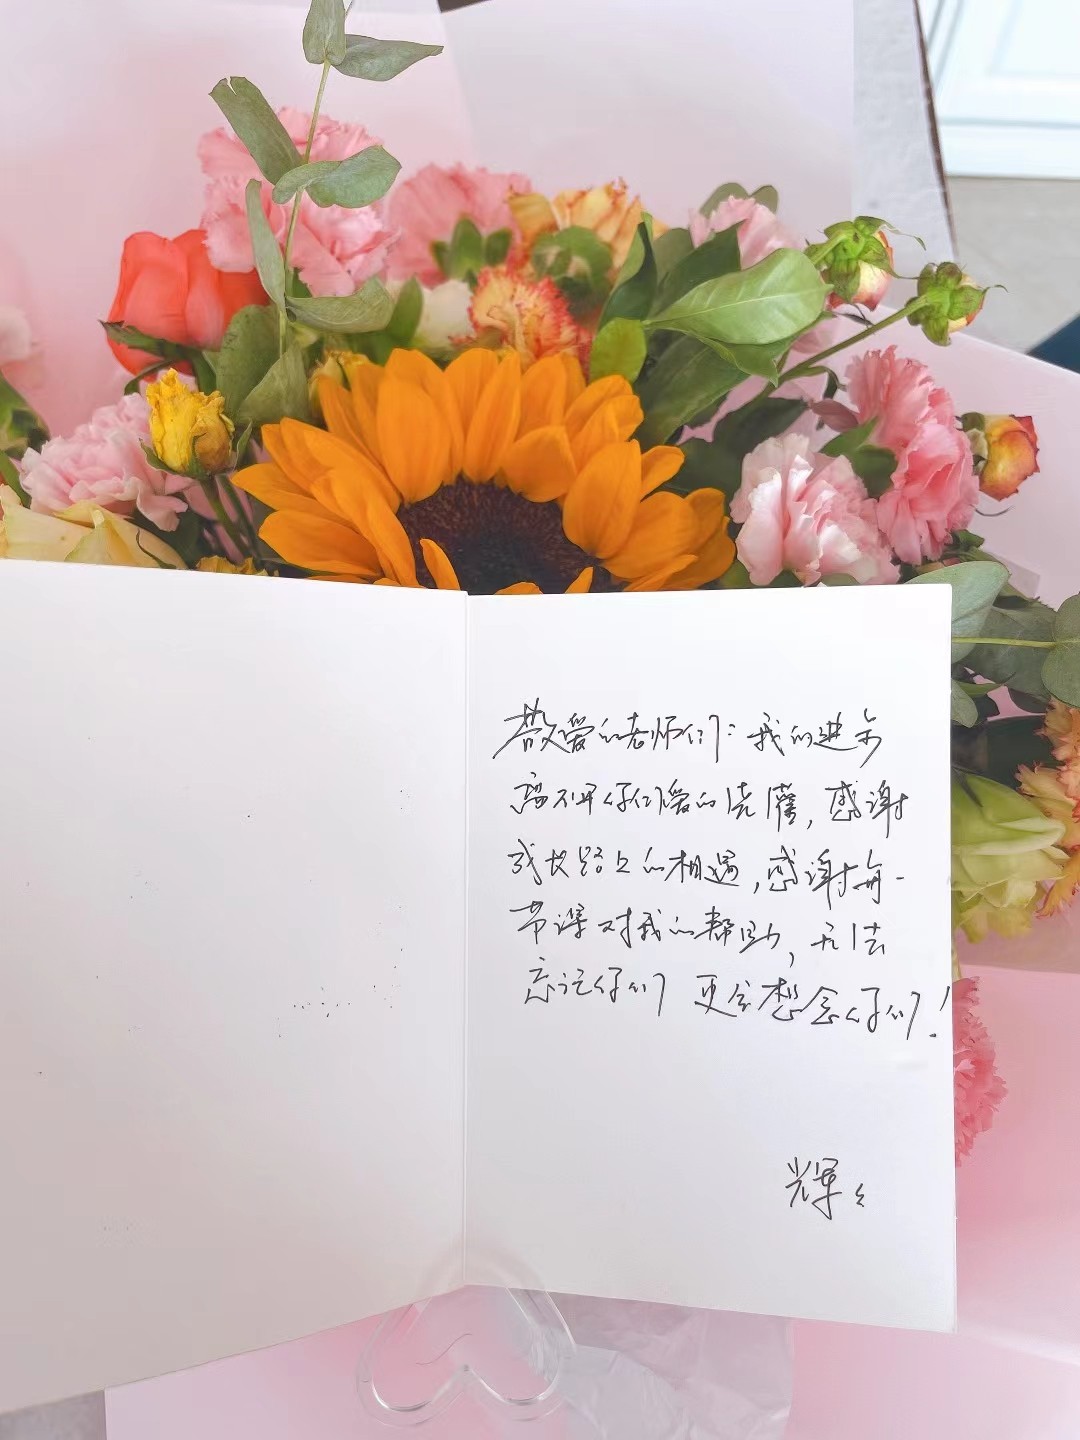 敬爱的老师们：我的进步
离不开你们爱的浇灌，感谢
成长路上的相遇，感谢每一
节课对我的帮助，无法
忘记你们 更会想念你们！
辉々